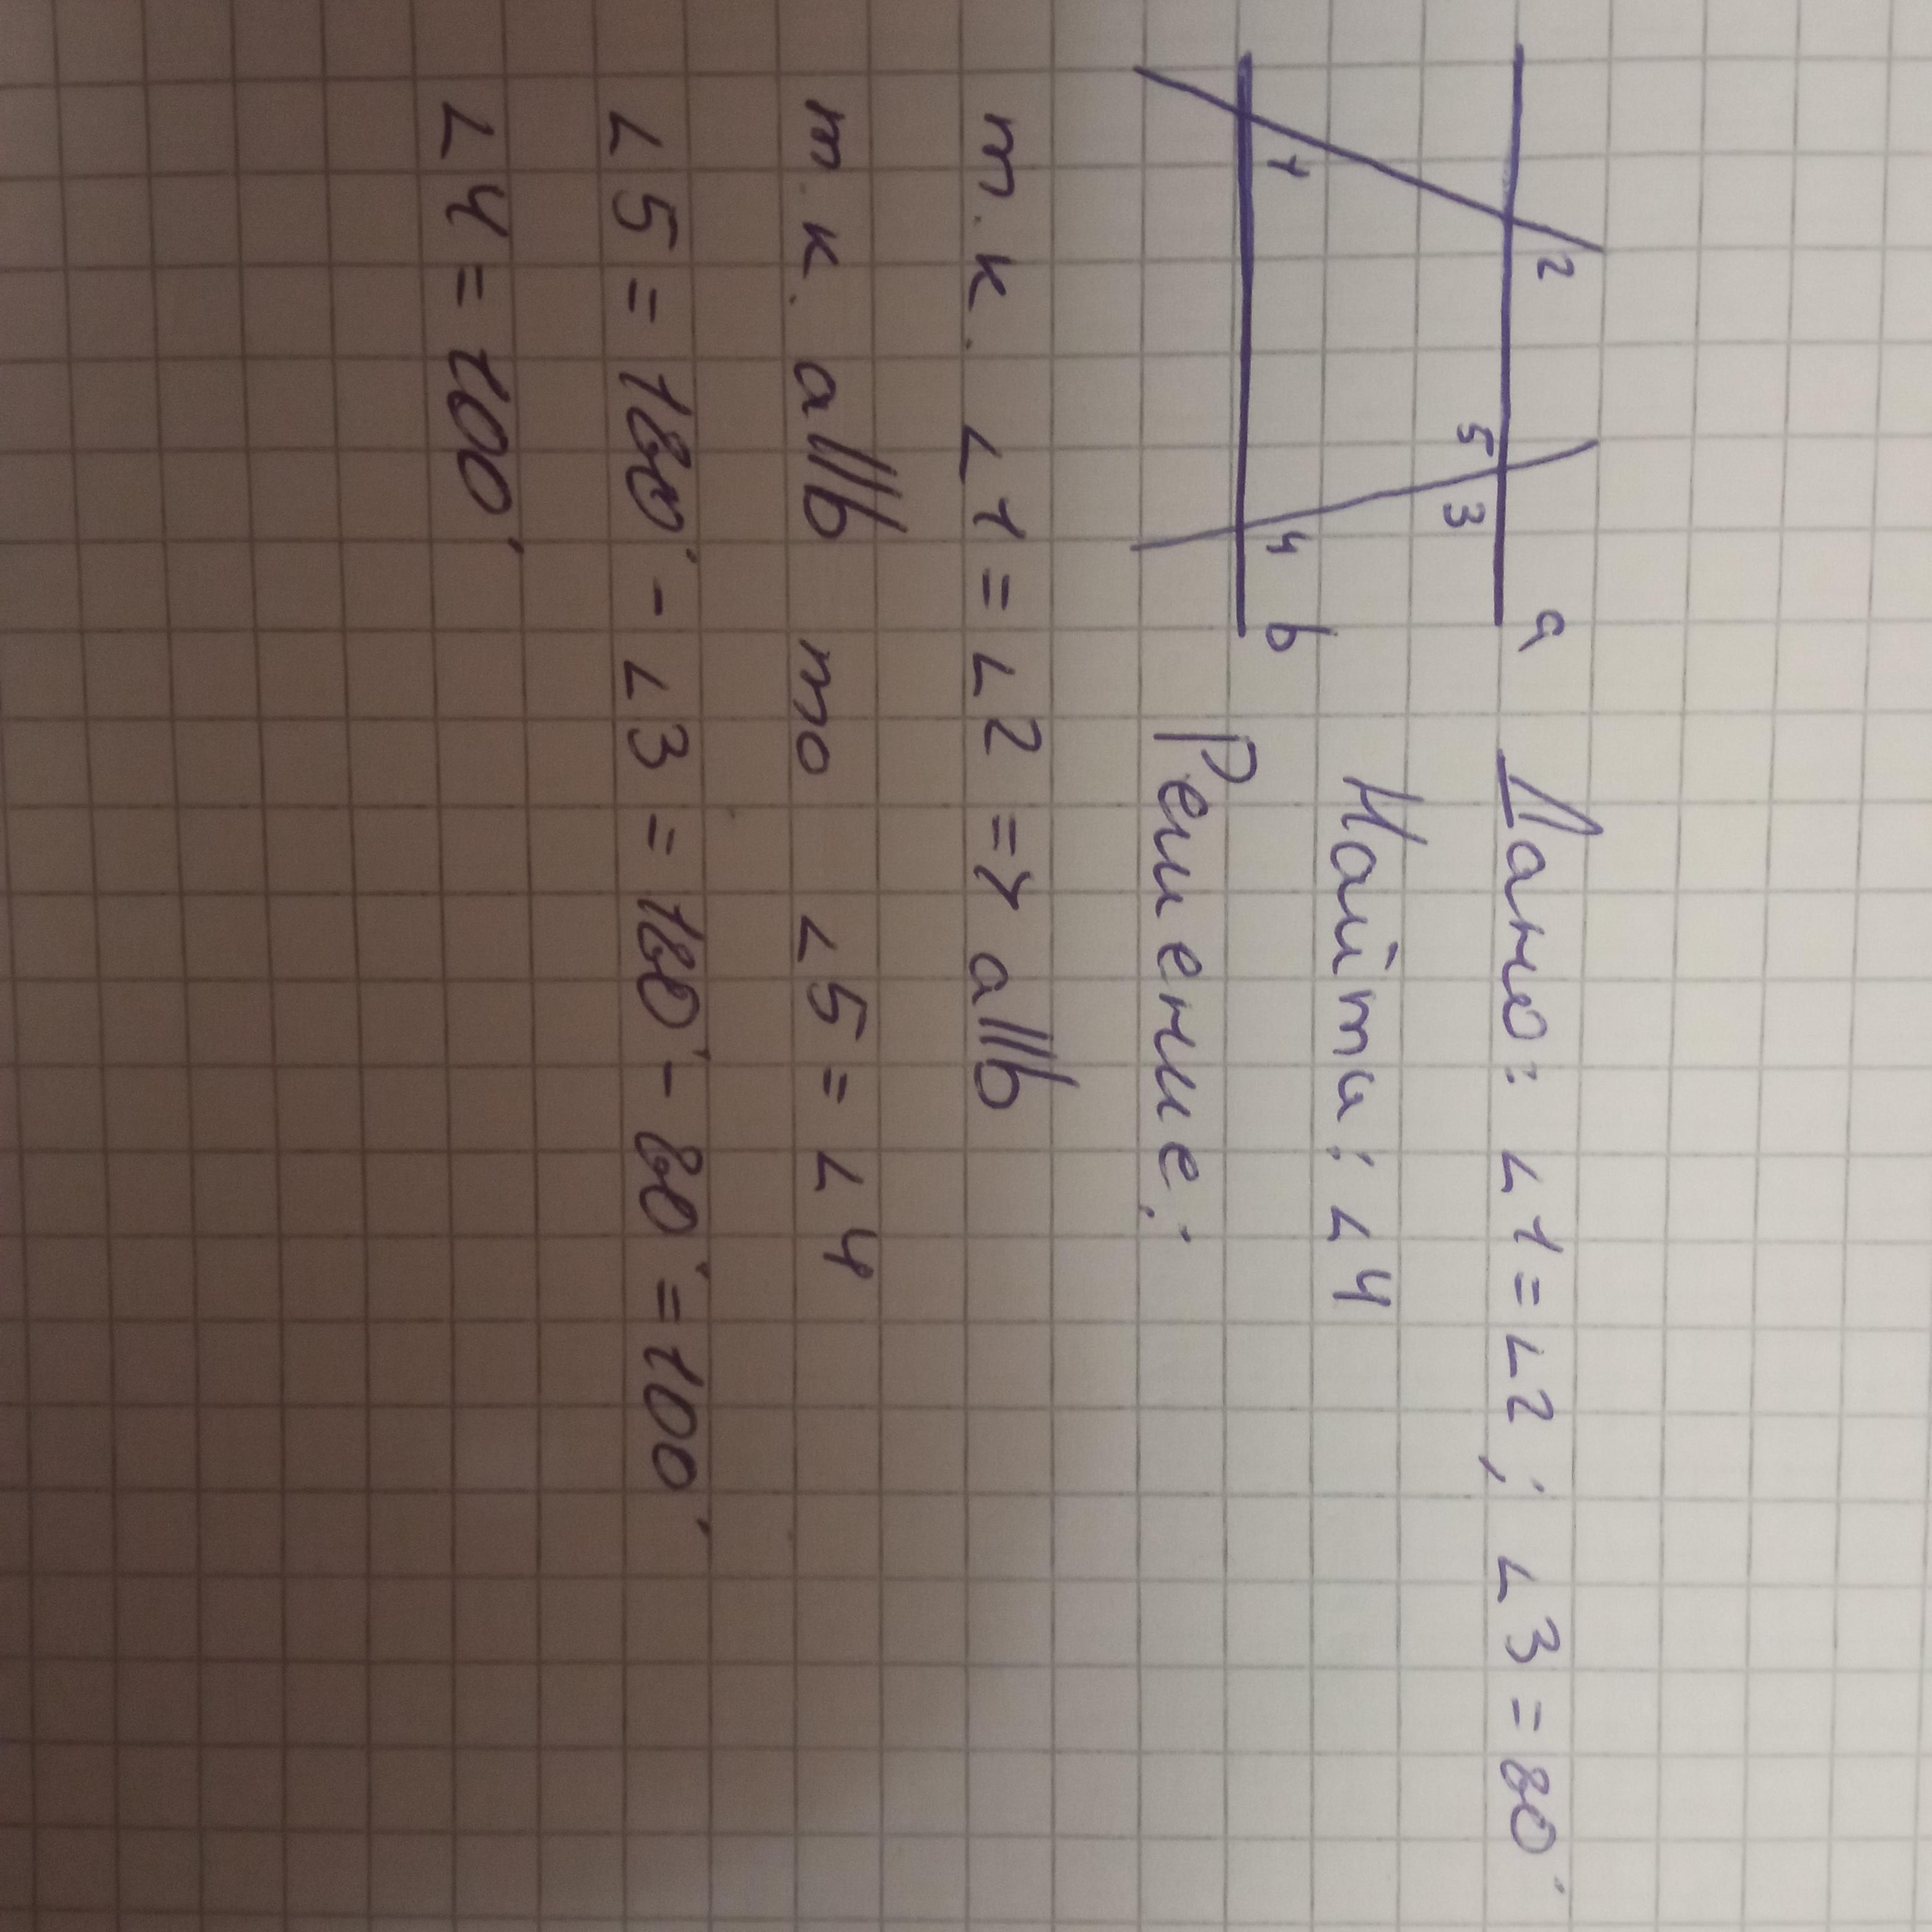 2 a
5 3
1 4 b
Дано: ∠1=∠2; ∠3=80°
Найти: ∠4
Решение:
т.к. ∠1=∠2 => a||b
т.к. a||b то ∠5=∠4
∠5=180°-∠3=180°-80°=100°
∠4=100°